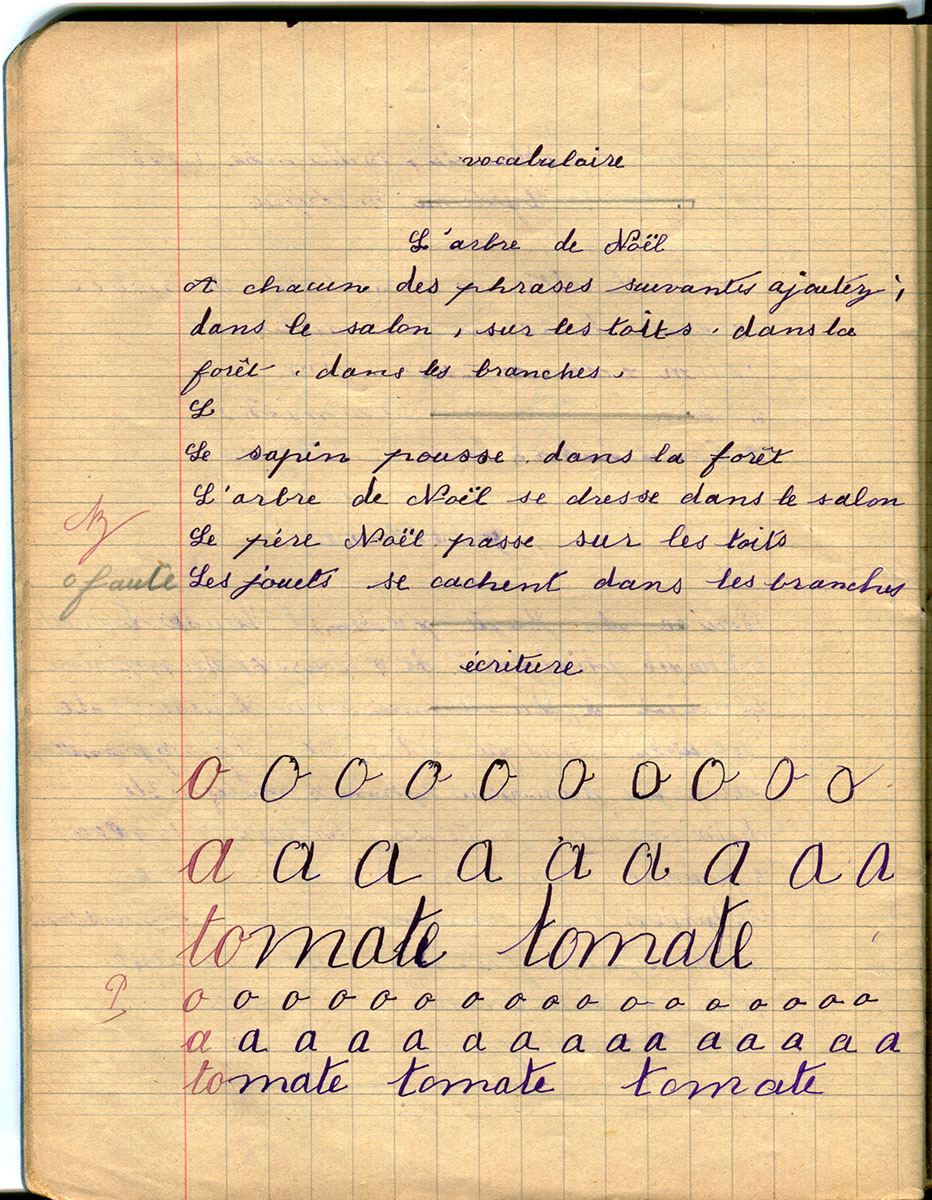 vocabulaire
L'arbre de Noël
A chacune des phrases suivantes ajoutez ;
dans le salon, sur les toits. dans la
forêt. dans les branches.
L
Le sapin pousse. dans la forêt
L'arbre de Noël se dresse dans le salon
Le pére Noël passe sur les toits
0 faute Les jouets se cachent dans les branches
écriture
o o o o o o o o o o
a a a a a a a a a
tomate tomate
o o o o o o o o o o o o o o o o o o
a a a a a a a a a a a a a a a
tomate tomate tomate